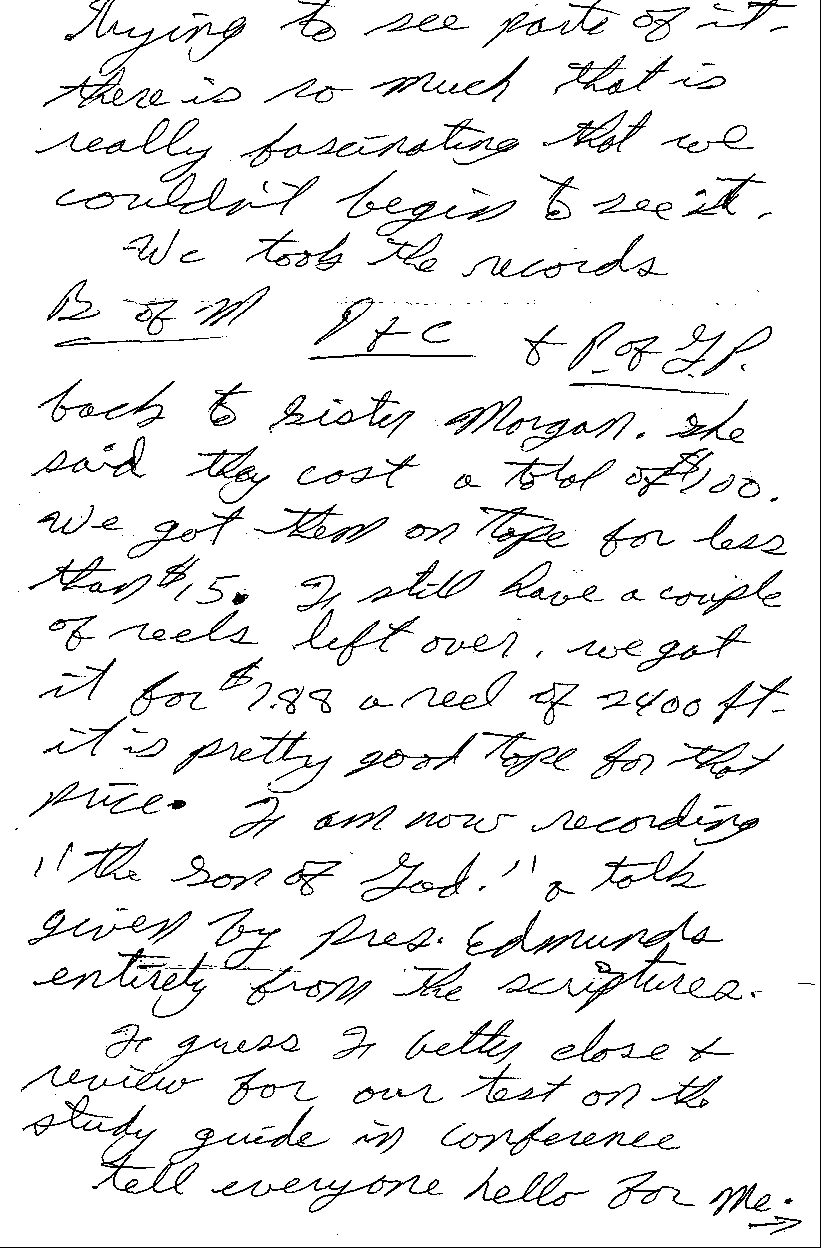 trying to see parts of it -
there is so much that is
really fascinating that we
couldn't begin to see it.
We took the records
B of M D & C & P. of G.P.
back to Sister Morgan. she
said they cost a total of $100.
we got them on tape for less
than $15. I still have a couple
of reels left over. we got
it for $1.88 a reel of 2400 ft -
it is pretty good tape for that
price. I am now recording
"the Son of God." a talk
given by Pres. Edmunds
entirely from the scriptures.
I guess I better close &
review for our test on the
study guide in conference
tell everyone hello for me.
→